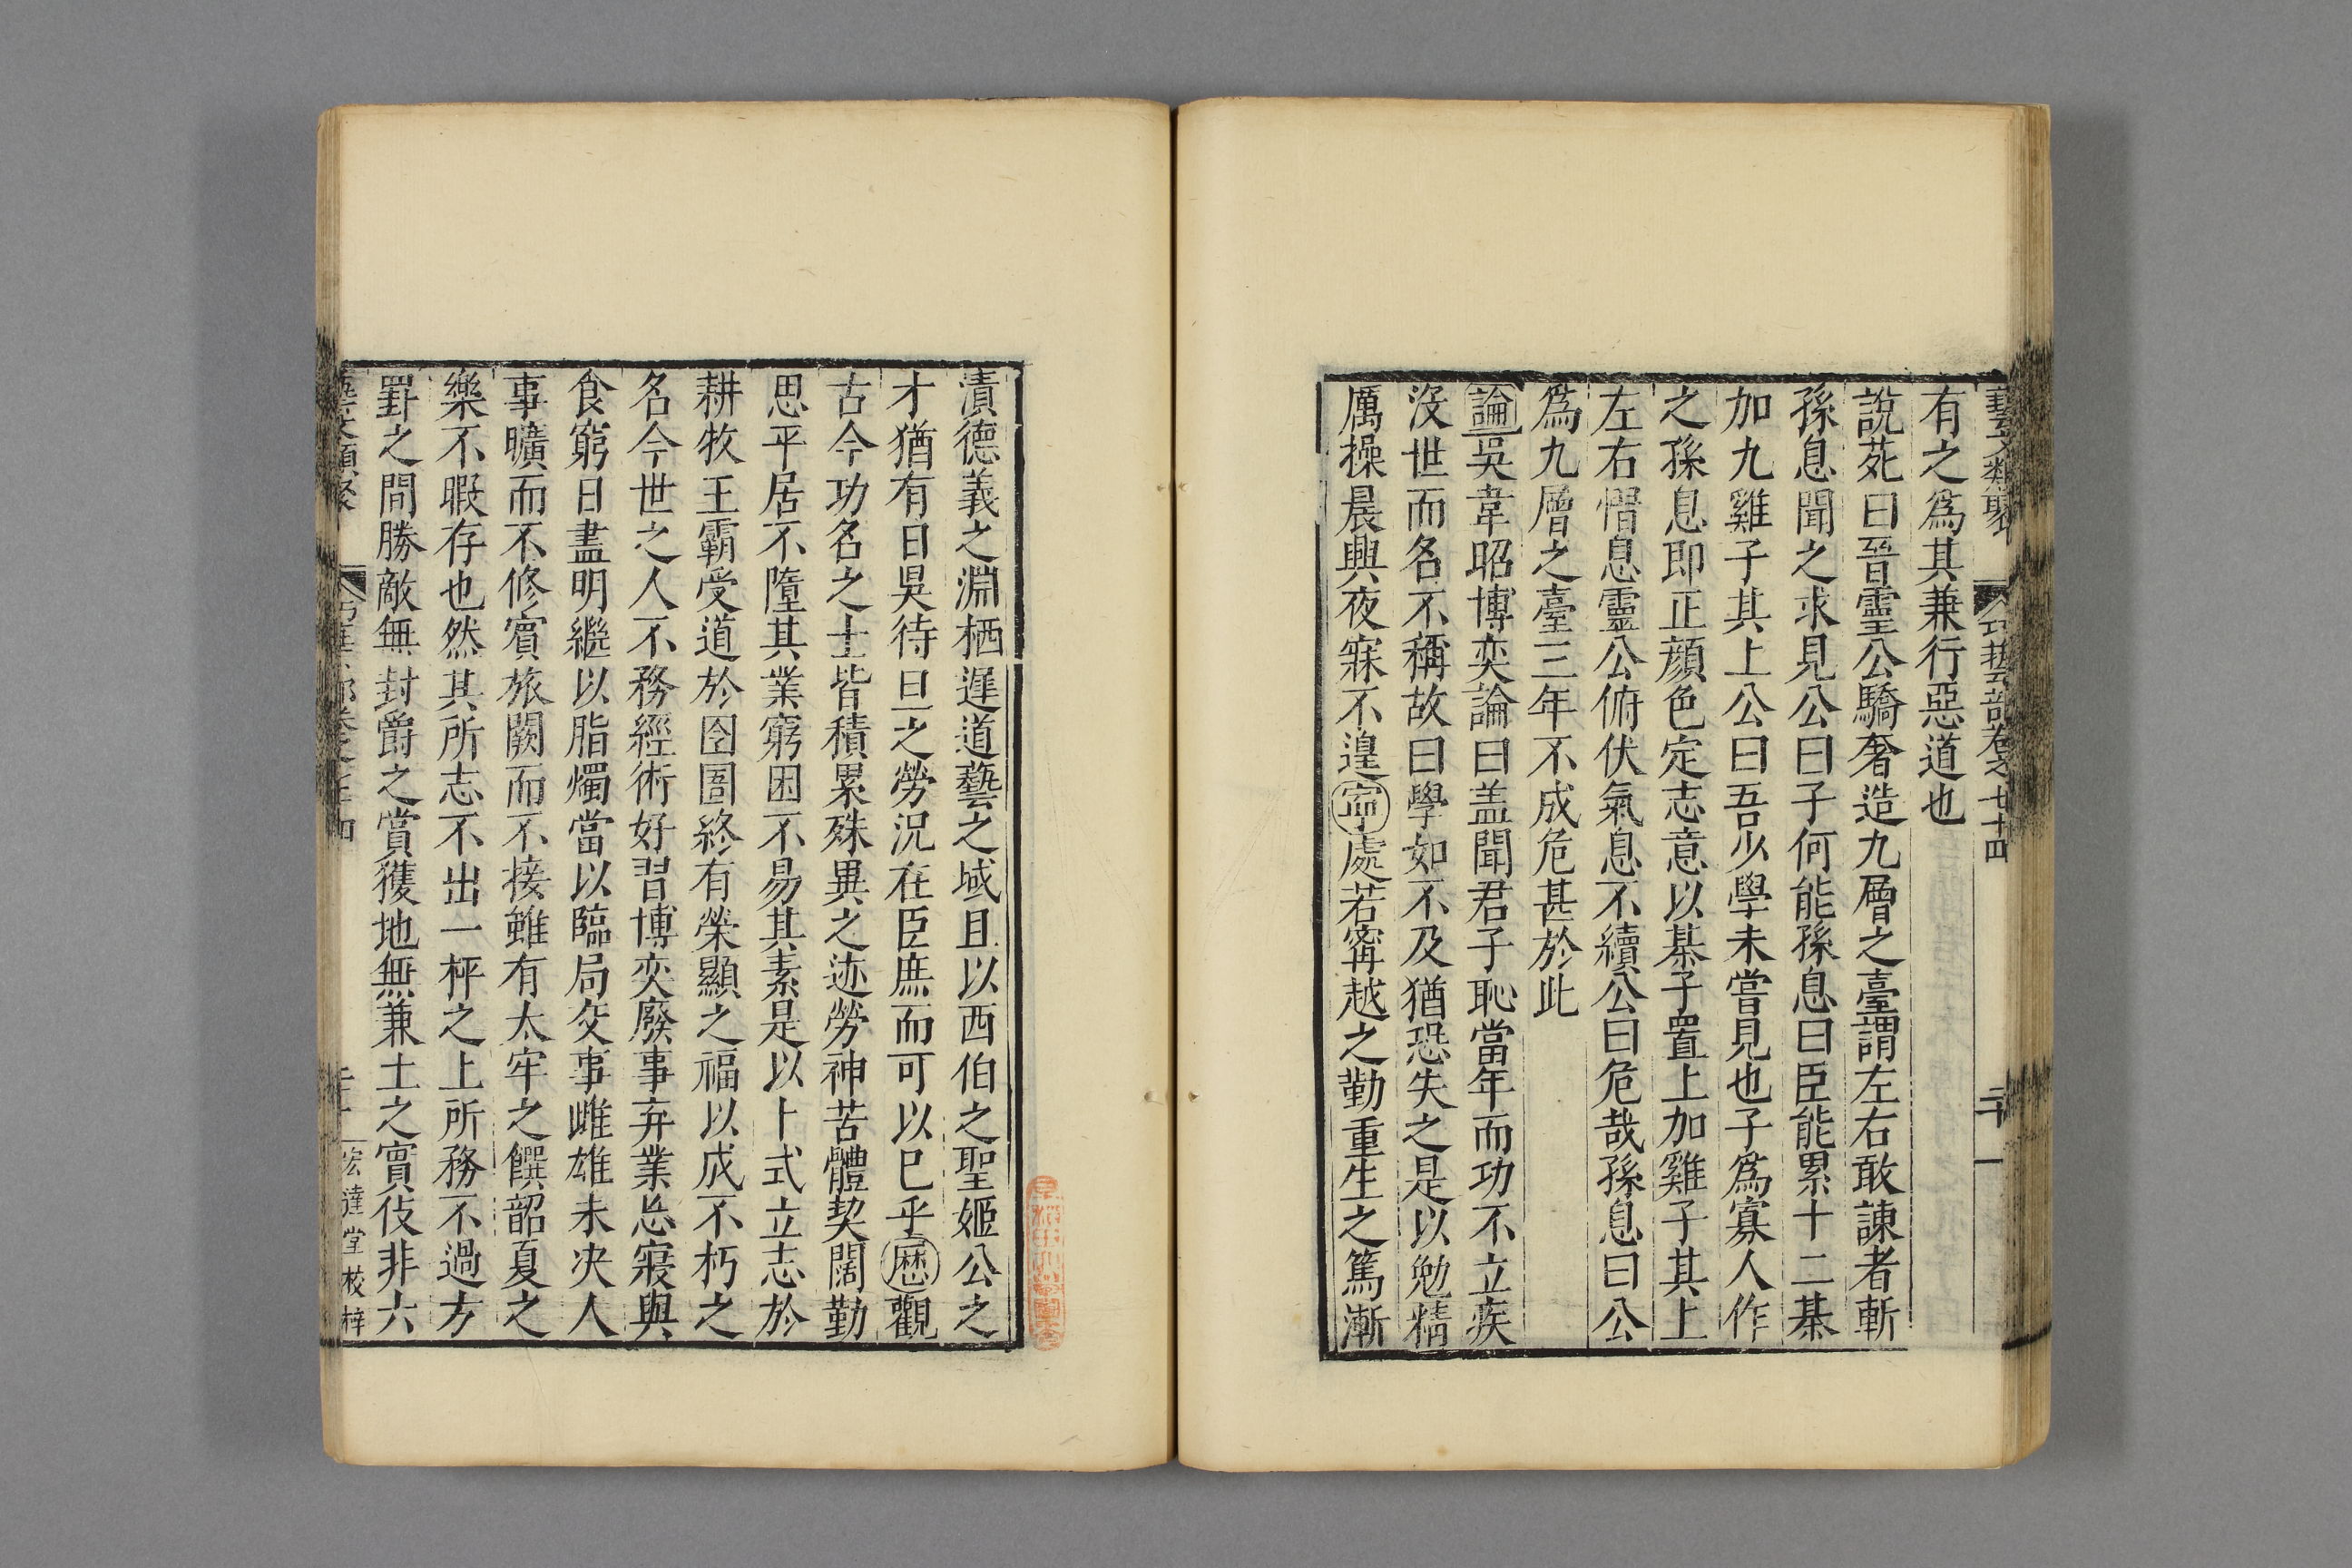 藝文類聚 巧藝部卷之七十四 二十
有之爲其兼行惡道也
說苑曰晉靈公驕奢造九層之臺謂左右敢諫者斬
孫息聞之求見公曰子何能孫息曰臣能累十二棊
加九雞子其上公曰吾少學未嘗見也子爲寡人作
之孫息即正顔色定志意以棊子置上加雞子其上
左右慴息靈公俯伏氣息不續公曰危哉孫息曰公
爲九層之臺三年不成危甚於此
論吳韋昭博奕論曰盖聞君子恥當年而功不立疾
沒世而名不稱故曰學如不及猶恐失之是以勉精
厲操晨興夜寐不遑寧處若甯越之勤重生之篤漸
漬德義之淵栖遲道藝之域且以西伯之聖姬公之
才猶有日昃待旦之勞況在臣庶而可以已乎歷觀
古今功名之士皆積累殊異之迹勞神苦體契闊勤
思平居不隋其業窮困不易其素是以卜式立志於
耕牧王霸受道於囹圄終有榮顯之福以成不朽之
名今世之人不務經術好習博奕廢事弃業忘寢與
食窮日盡明繼以脂燭當以臨局交事雌雄未决人
事曠而不修賓旅闕而不接雖有太牢之饌韶夏之
樂不暇存也然其所志不出一枰之上所務不過方
罫之間勝敵無封爵之賞獲地無兼土之實伎非六
藝文類聚 巧藝部卷之七十四 二十 宏達堂校梓